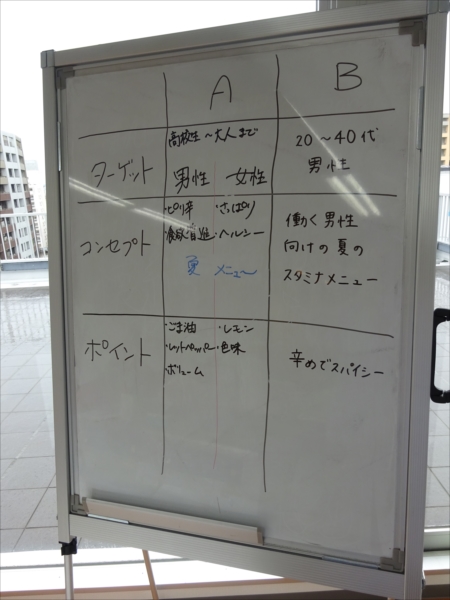 A
B
ターゲット
高校生～大人まで
男性 女性
20～40代
男性
コンセプト
・ピリ辛 ・さっぱり
・食欲増進 ・ヘルシー
夏 メニュー
働く男性
向けの夏の
スタミナメニュー
ポイント
・ごま油 ・レモン
・レッドペッパー ・色味
・ボリューム
辛めでスパイシー